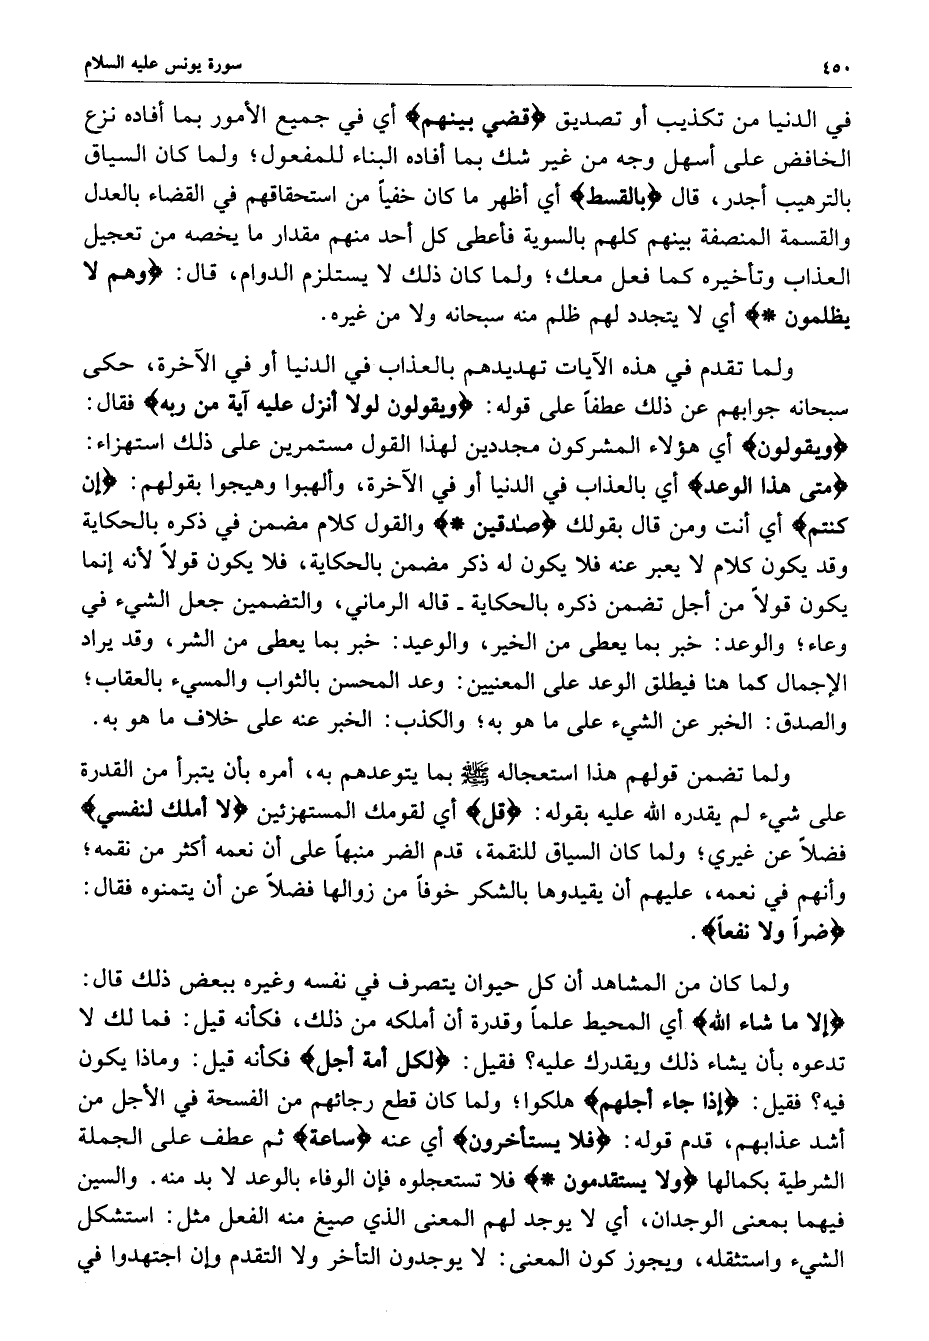 ٤٥٠ سورة يونس عليه السلام
في الدنيا من تكذيب أو تصديق ﴿قضي بينهم﴾ أي في جميع الأمور بما أفاده نزع
الخافض على أسهل وجه من غير شك بما أفاده البناء للمفعول؛ ولما كان السياق
بالترهيب أجدر، قال ﴿بالقسط﴾ أي أظهر ما كان خفياً من استحقاقهم في القضاء بالعدل
والقسمة المنصفة بينهم كلهم بالسوية فأعطى كل أحد منهم مقدار ما يخصه من تعجيل
العذاب وتأخيره كما فعل معك؛ ولما كان ذلك لا يستلزم الدوام، قال: ﴿وهم لا
يظلمون *﴾ أي لا يتجدد لهم ظلم منه سبحانه ولا من غيره.
ولما تقدم في هذه الآيات تهديدهم بالعذاب في الدنيا أو في الآخرة، حكى
سبحانه جوابهم عن ذلك عطفاً على قوله: ﴿ويقولون لولا أنزل عليه آية من ربه﴾ فقال:
﴿ويقولون﴾ أي هؤلاء المشركون مجددين لهذا القول مستمرين على ذلك استهزاء:
﴿متى هذا الوعد﴾ أي بالعذاب في الدنيا أو في الآخرة، وألهبوا وهيجوا بقولهم: ﴿إن
كنتم﴾ أي أنت ومن قال بقولك ﴿صٰدقين *﴾ والقول كلام مضمن في ذكره بالحكاية
وقد يكون كلام لا يعبر عنه فلا يكون له ذكر مضمن بالحكاية، فلا يكون قولاً لأنه إنما
يكون قولاً من أجل تضمن ذكره بالحكاية ـ قاله الرماني، والتضمين جعل الشيء في
وعاء؛ والوعد: خبر بما يعطى من الخير، والوعيد: خبر بما يعطى من الشر، وقد يراد
الإجمال كما هنا فيطلق الوعد على المعنيين: وعد المحسن بالثواب والمسيء بالعقاب؛
والصدق: الخبر عن الشيء على ما هو به؛ والكذب: الخبر عنه على خلاف ما هو به.
ولما تضمن قولهم هذا استعجاله ﷺ بما يتوعدهم به، أمره بأن يتبرأ من القدرة
على شيء لم يقدره الله عليه بقوله: ﴿قل﴾ أي لقومك المستهزئين ﴿لا أملك لنفسي﴾
فضلاً عن غيري؛ ولما كان السياق للنقمة، قدم الضر منبهاً على أن نعمه أكثر من نقمه؛
وأنهم في نعمه، عليهم أن يقيدوها بالشكر خوفاً من زوالها فضلاً عن أن يتمنوه فقال:
﴿ضراً ولا نفعاً﴾.
ولما كان من المشاهد أن كل حيوان يتصرف في نفسه وغيره ببعض ذلك قال:
﴿إلا ما شاء الله﴾ أي المحيط علماً وقدرة أن أملكه من ذلك، فكأنه قيل: فما لك لا
تدعوه بأن يشاء ذلك ويقدرك عليه؟ فقيل: ﴿لكل أمة أجل﴾ فكأنه قيل: وماذا يكون
فيه؟ فقيل: ﴿إذا جاء أجلهم﴾ هلكوا؛ ولما كان قطع رجائهم من الفسحة في الأجل من
أشد عذابهم، قدم قوله: ﴿فلا يستأخرون﴾ أي عنه ﴿ساعة﴾ ثم عطف على الجملة
الشرطية بكمالها ﴿ولا يستقدمون *﴾ فلا تستعجلوه فإن الوفاء بالوعد لا بد منه. والسين
فيهما بمعنى الوجدان، أي لا يوجد لهم المعنى الذي صيغ منه الفعل مثل: استشكل
الشيء واستثقله، ويجوز كون المعنى: لا يوجدون التأخر ولا التقدم وإن اجتهدوا في